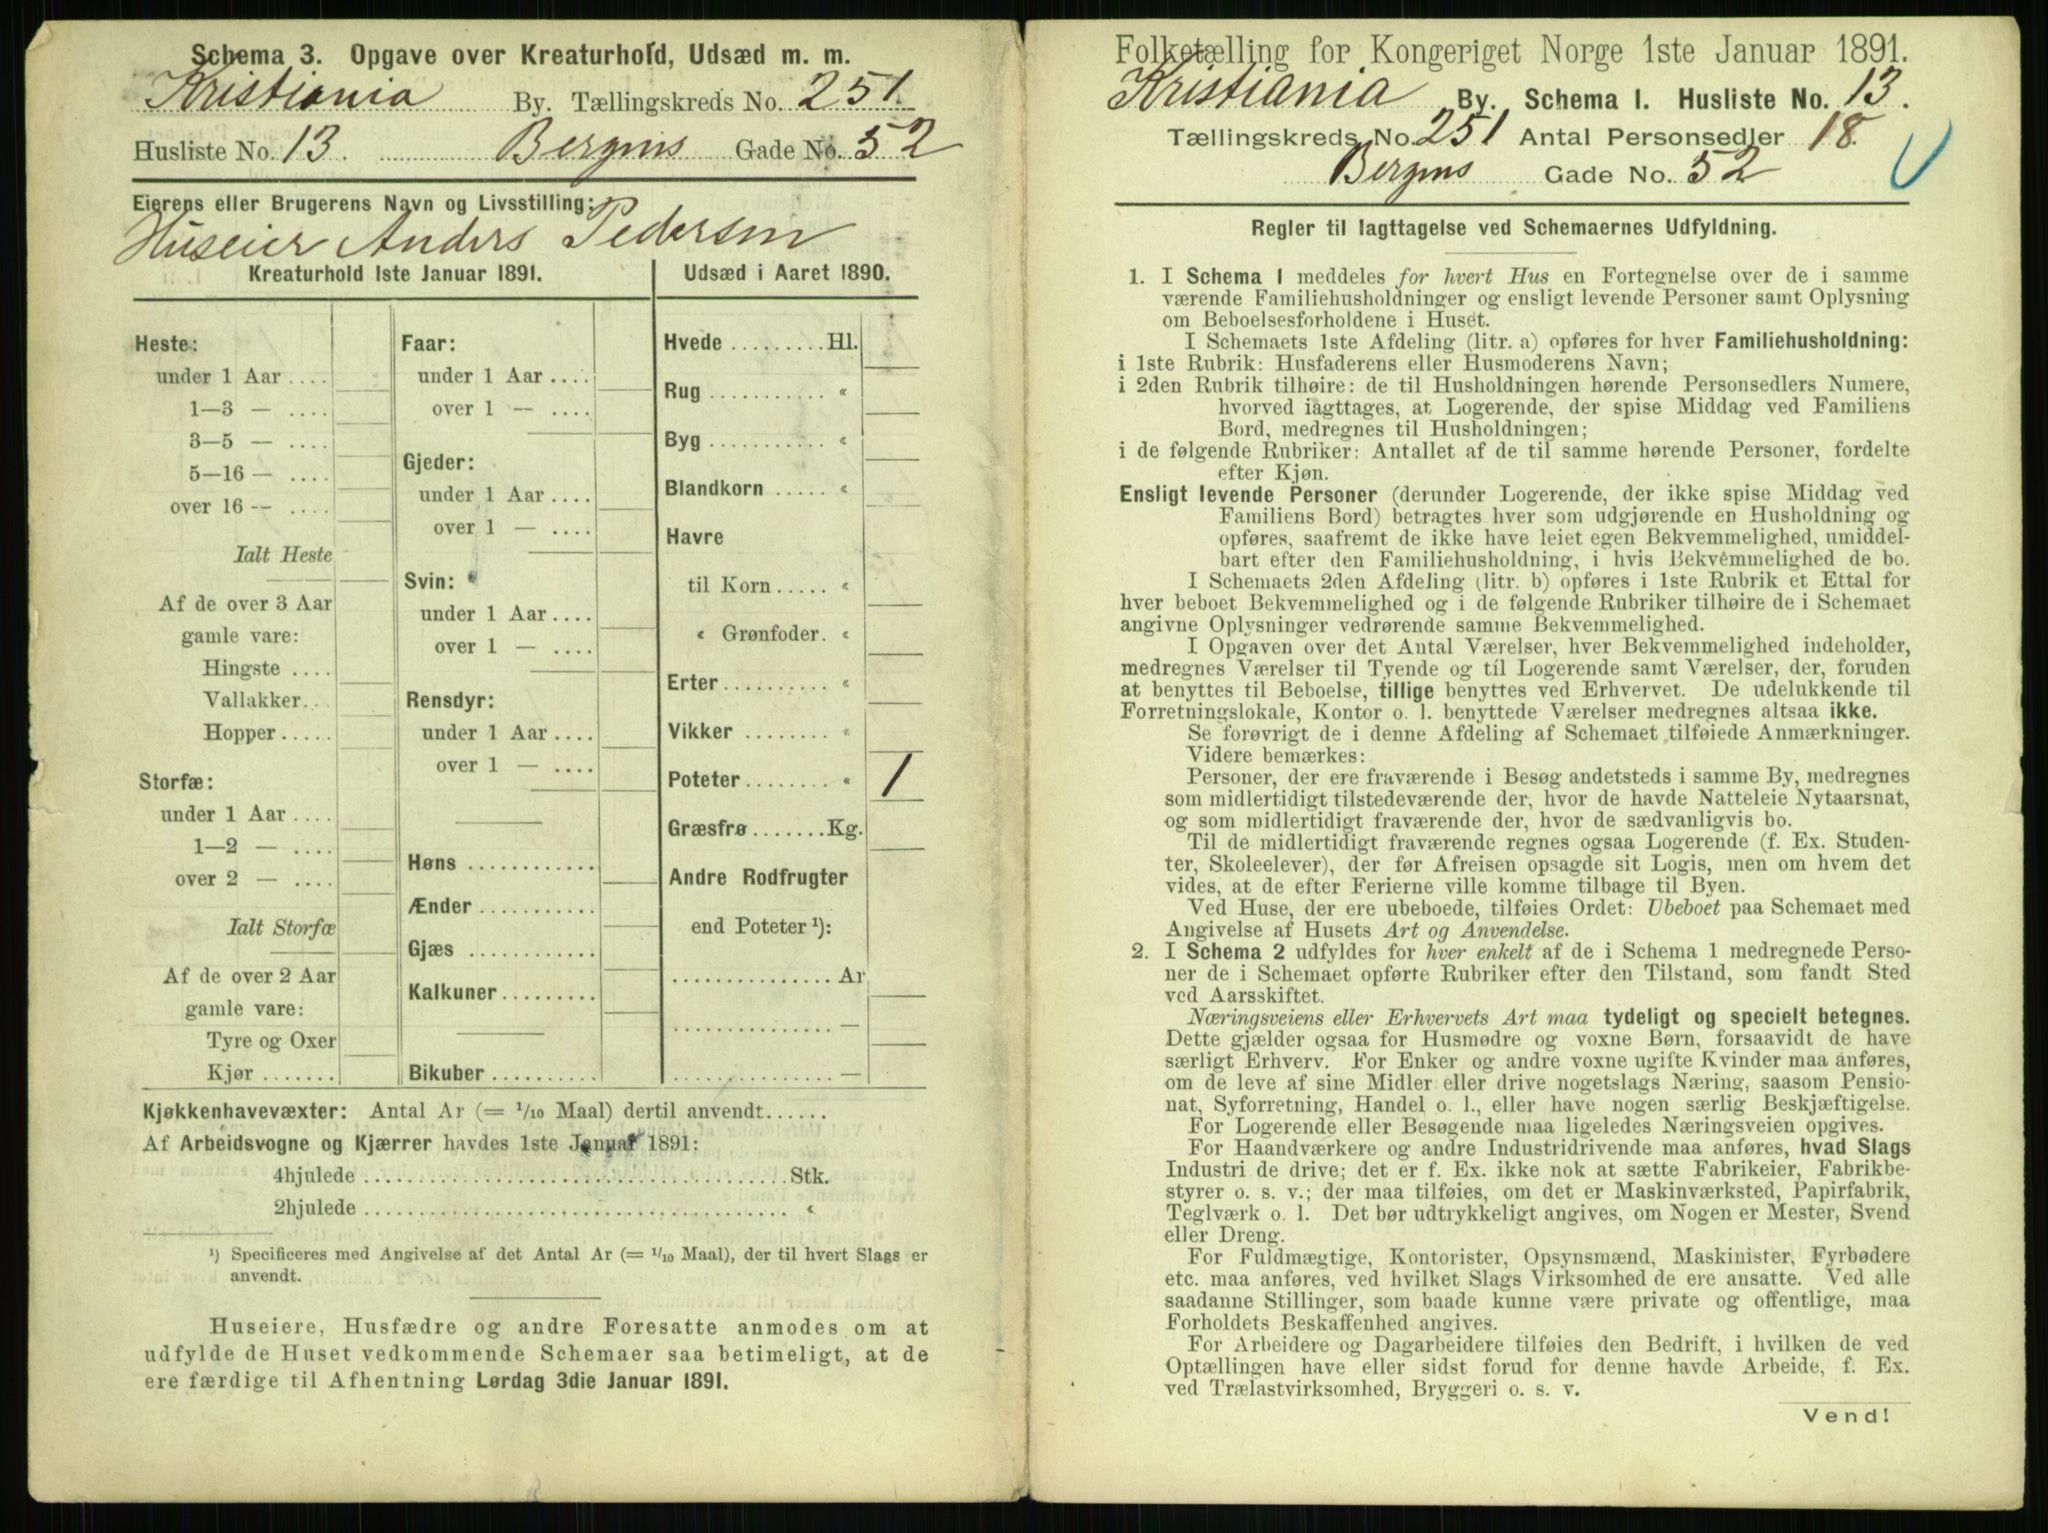 Schema 3. Opgave over Kreaturhold, Udsæd m. m.
Kristiania By. Tællingskreds No. 251.
Husliste No. 13. Bergens Gade No. 52
Eierens eller Brugerens Navn og Livsstilling:
Huseier Anders Pedersen
Kreaturhold 1ste Januar 1891.
Heste:
under 1 Aar ....
1—3 — ....
3—5 — ....
5—16 — ....
over 16 — ....
Ialt Heste
Af de over 3 Aar
gamle vare:
Hingste ....
Vallakker...
Hopper .....
Storfæ:
under 1 Aar ....
1—2 — ....
over 2 — ....
Ialt Storfæ
Af de over 2 Aar
gamle vare:
Tyre og Oxer
Kjør .......
Faar:
under 1 Aar ....
over 1 — ....
Gjeder:
under 1 Aar ....
over 1 — ....
Svin:
under 1 Aar ....
over 1 — ....
Rensdyr:
under 1 Aar ....
over 1 — ....
Høns ............
Ænder ...........
Gjæs ............
Kalkuner.........
Bikuber ..........
Udsæd i Aaret 1890.
Hvede .........Hl.
Rug ........... «
Byg ........... «
Blandkorn ..... «
Havre
til Korn ..... «
« Grønfoder. «
Erter.......... «
Vikker ........ «
Poteter........ « 1
Græsfrø .......Kg.
Andre Rodfrugter
end Poteter ¹):
............... Ar
............... —
............... —
Kjøkkenhavevæxter: Antal Ar (= 1/10 Maal) dertil anvendt......
Af Arbeidsvogne og Kjærrer havdes 1ste Januar 1891:
4hjulede ........................................Stk.
2hjulede ........................................ «
¹) Specificeres med Angivelse af det Antal Ar (= 1/10 Maal), der til hvert Slags er
anvendt.
Huseiere, Husfædre og andre Foresatte anmodes om at
udfylde de Huset vedkommende Schemaer saa betimeligt, at de
ere færdige til Afhentning Lørdag 3die Januar 1891.
Folketælling for Kongeriget Norge 1ste Januar 1891.
Kristiania By. Schema 1. Husliste No. 13.
Tællingskreds No. 251 Antal Personsedler 18.
Bergens Gade No. 52
Regler til Iagttagelse ved Schemaernes Udfyldning.
1. I Schema 1 meddeles for hvert Hus en Fortegnelse over de i samme
værende Familiehusholdninger og ensligt levende Personer samt Oplysning
om Beboelsesforholdene i Huset.
I Schemaets 1ste Afdeling (litr. a) opføres for hver Familiehusholdning:
i 1ste Rubrik: Husfaderens eller Husmoderens Navn;
i 2den Rubrik tilhøire: de til Husholdningen hørende Personsedlers Numere,
hvorved iagttages, at Logerende, der spise Middag ved Familiens
Bord, medregnes til Husholdningen;
i de følgende Rubriker: Antallet af de til samme hørende Personer, fordelte
efter Kjøn.
Ensligt levende Personer (derunder Logerende, der ikke spise Middag ved
Familiens Bord) betragtes hver som udgjørende en Husholdning og
opføres, saafremt de ikke have leiet egen Bekvemmelighed, umiddel-
bart efter den Familiehusholdning, i hvis Bekvemmelighed de bo.
I Schemaets 2den Afdeling (litr. b) opføres i 1ste Rubrik et Ettal for
hver beboet Bekvemmelighed og i de følgende Rubriker tilhøire de i Schemaet
angivne Oplysninger vedrørende samme Bekvemmelighed.
I Opgaven over det Antal Værelser, hver Bekvemmelighed indeholder,
medregnes Værelser til Tyende og til Logerende samt Værelser, der, foruden
at benyttes til Beboelse, tillige benyttes ved Erhvervet. De udelukkende til
Forretningslokale, Kontor o. l. benyttede Værelser medregnes altsaa ikke.
Se forøvrigt de i denne Afdeling af Schemaet tilføiede Anmærkninger.
Videre bemærkes:
Personer, der ere fraværende i Besøg andetsteds i samme By, medregnes
som midlertidigt tilstedeværende der, hvor de havde Natteleie Nytaarsnat,
og som midlertidigt fraværende der, hvor de sædvanligvis bo.
Til de midlertidigt fraværende regnes ogsaa Logerende (f. Ex. Studen-
ter, Skoleelever), der før Afreisen opsagde sit Logis, men om hvem det
vides, at de efter Ferierne ville komme tilbage til Byen.
Ved Huse, der ere ubeboede, tilføies Ordet: Ubeboet paa Schemaet med
Angivelse af Husets Art og Anvendelse.
2. I Schema 2 udfyldes for hver enkelt af de i Schema 1 medregnede Perso-
ner de i Schemaet opførte Rubriker efter den Tilstand, som fandt Sted
ved Aarsskiftet.
Næringsveiens eller Erhvervets Art maa tydeligt og specielt betegnes.
Dette gjælder ogsaa for Husmødre og voxne Børn, forsaavidt de have
særligt Erhverv. For Enker og andre voxne ugifte Kvinder maa anføres,
om de leve af sine Midler eller drive nogetslags Næring, saasom Pensio-
nat, Syforretning, Handel o. l., eller have nogen særlig Beskjæftigelse.
For Logerende eller Besøgende maa ligeledes Næringsveien opgives.
For Haandværkere og andre Industridrivende maa anføres, hvad Slags
Industri de drive; det er f. Ex. ikke nok at sætte Fabrikeier, Fabrikbe-
styrer o. s. v.; der maa tilføies, om det er Maskinværksted, Papirfabrik,
Teglværk o. l. Det bør udtrykkeligt angives, om Nogen er Mester, Svend
eller Dreng.
For Fuldmægtige, Kontorister, Opsynsmænd, Maskinister, Fyrbødere
etc. maa anføres, ved hvilket Slags Virksomhed de ere ansatte. Ved alle
saadanne Stillinger, som baade kunne være private og offentlige, maa
Forholdets Beskaffenhed angives.
For Arbeidere og Dagarbeidere tilføies den Bedrift, i hvilken de ved
Optællingen have eller sidst forud for denne havde Arbeide, f. Ex.
ved Trælastvirksomhed, Bryggeri o. s. v.
Vend!